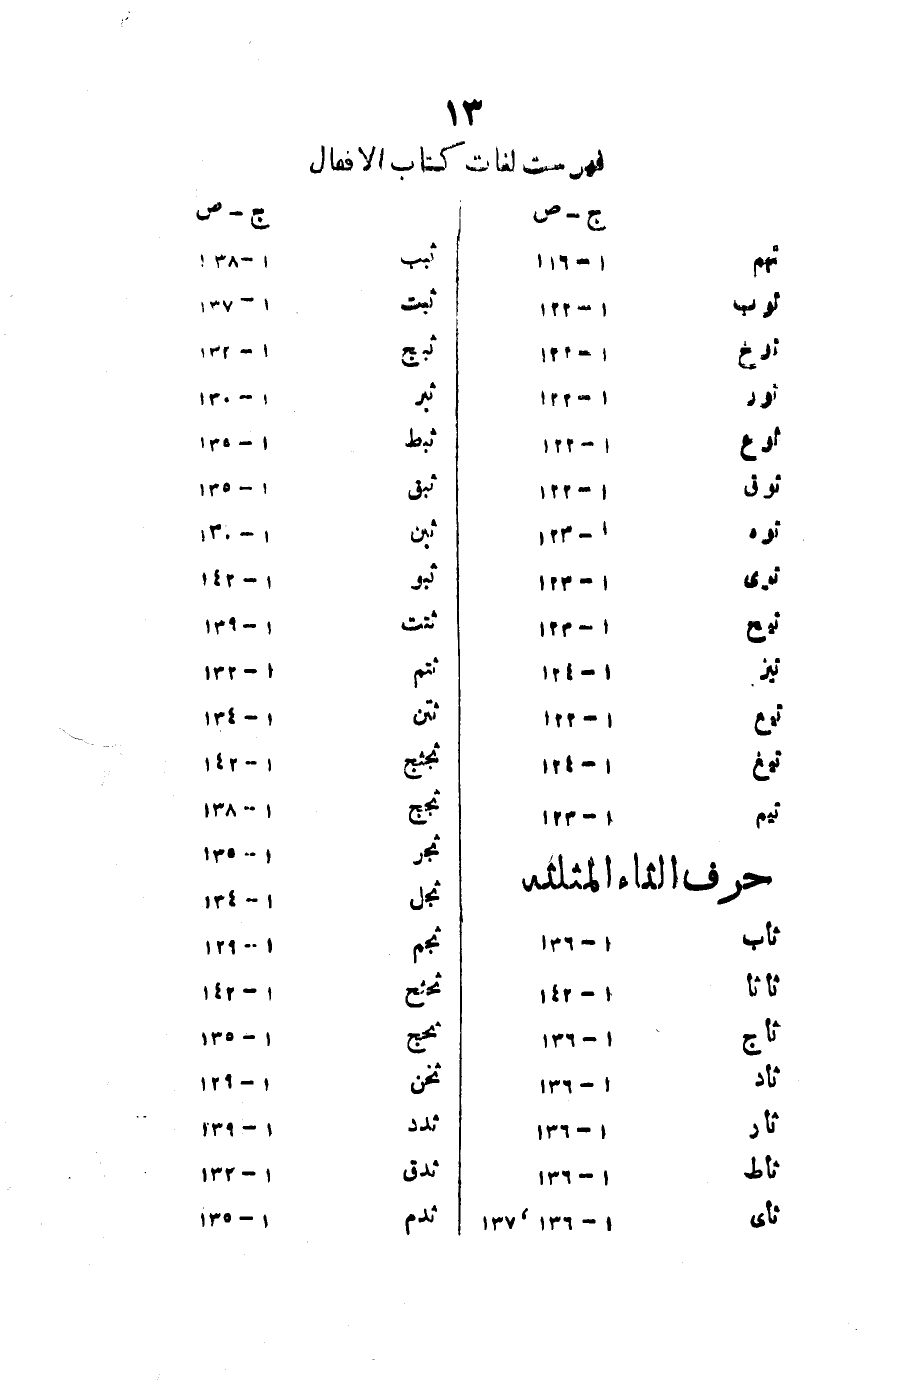 ١٣
فهرست لغات كتاب الافعال
ج - ص
تهم ١ - ١١٦
توب ١ - ١٢٢
توخ ١ - ١٢٢
تور ١ - ١٢٢
توع ١ - ١٢٢
توق ١ - ١٢٢
توه ١ - ١٢٣
توى ١ - ١٢٣
تيح ١ - ١٢٣
تيز ١ - ١٢٤
تيع ١ - ١٢٢
تيغ ١ - ١٢٤
تيم ١ - ١٢٣
حرف الثاء المثلثه
ثأب ١ - ١٣٦
ثأثأ ١ - ١٤٢
ثأج ١ - ١٣٦
ثأد ١ - ١٣٦
ثأر ١ - ١٣٦
ثأط ١ - ١٣٦
ثأى ١ - ١٣٦ ، ١٣٧
ج - ص
ثبب ١ - ١٣٨
ثبت ١ - ١٣٧
ثبج ١ - ١٣٢
ثبر ١ - ١٣٠
ثبط ١ - ١٣٥
ثبق ١ - ١٣٥
ثبن ١ - ١٣٠
ثبو ١ - ١٤٢
ثتت ١ - ١٣٩
ثتم ١ - ١٣٢
ثتن ١ - ١٣٤
ثجثج ١ - ١٤٢
ثجج ١ - ١٣٨
ثجر ١ - ١٣٥
ثجل ١ - ١٣٤
ثجم ١ - ١٢٩
ثحثح ١ - ١٤٢
ثحج ١ - ١٣٥
ثخن ١ - ١٢٩
ثدد ١ - ١٣٩
ثدق ١ - ١٣٢
ثدم ١ - ١٣٥